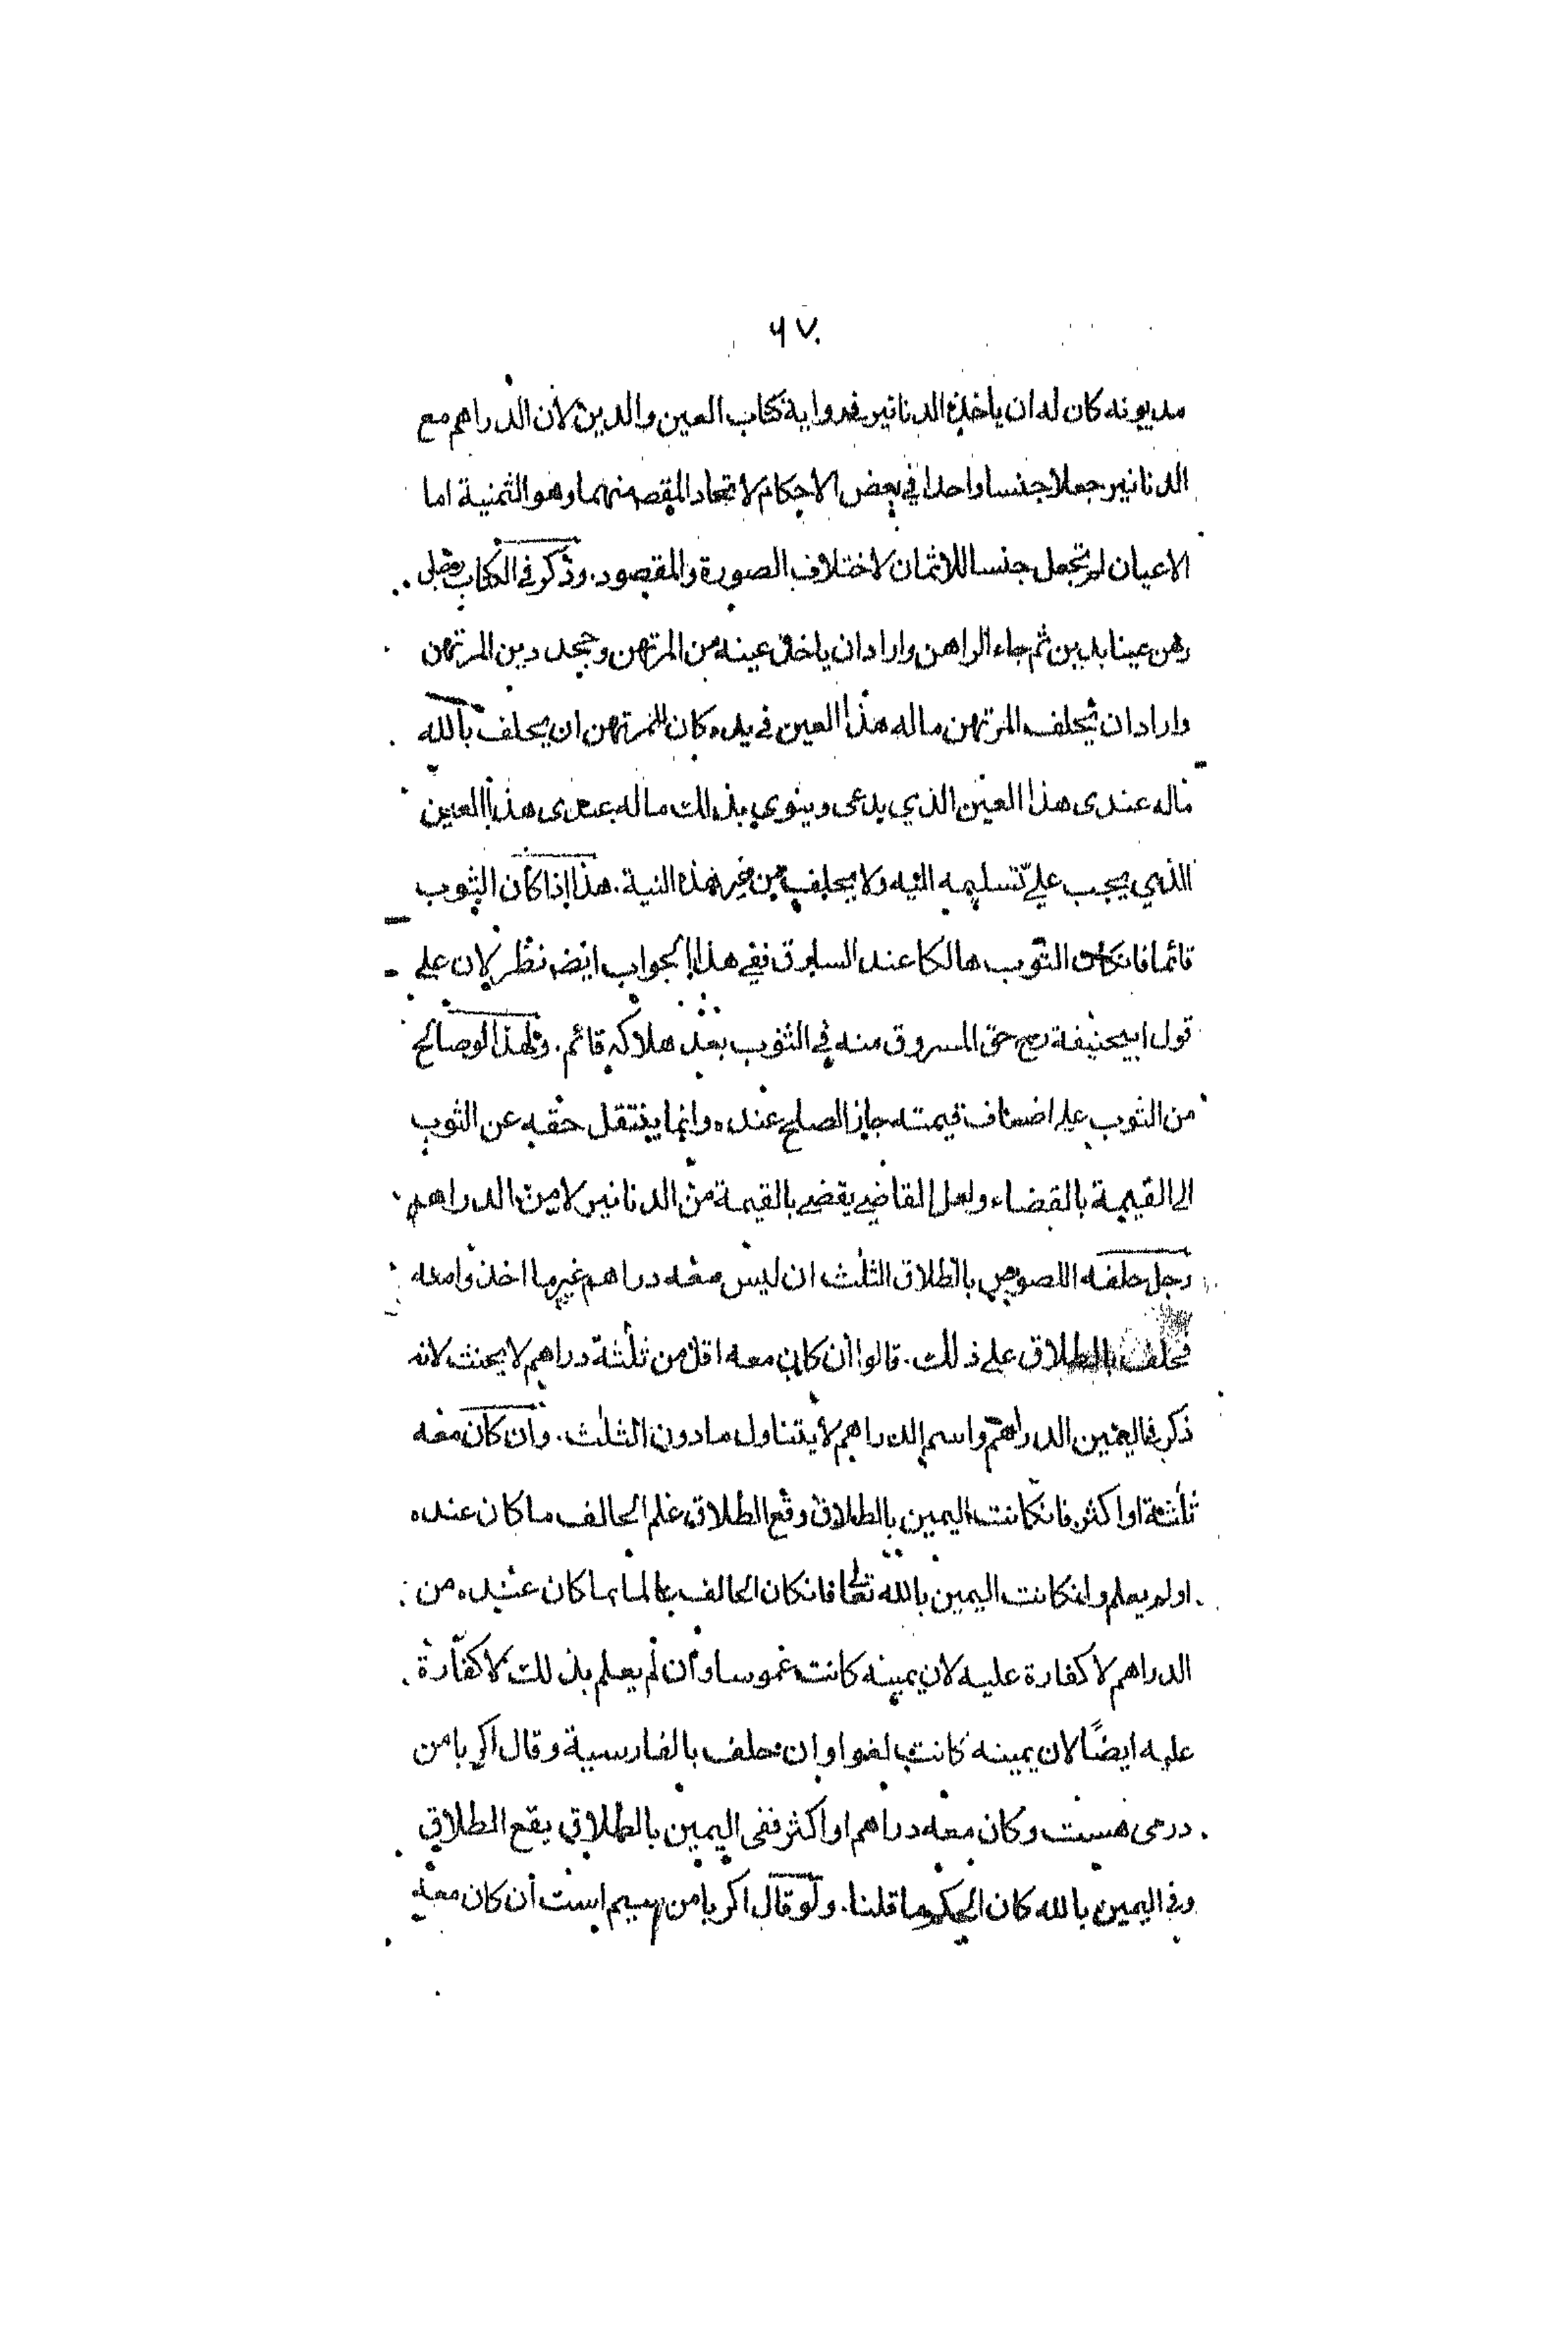 ٦٧
مديونه كان له ان ياخذ الدنانير في رواية كتاب العين والدين لان الدراهم مع
الدنانير جعلا جنسا واحدا في بعض الاحكام لاتحاد المقصد منهما وهو الثمنية اما
الاعيان لم تجعل جنسا للاثمان لاختلاف الصورة والمقصود. وذكر في الكتاب رجل
رهن عينا بدين ثم جاء الراهن واراد ان ياخذ عينه من المرتهن وجحد دين المرتهن
واراد ان يحلف المرتهن ماله هذا العين في يده كان للمرتهن ان يحلف بالله
ماله عندى هذا العين الذي يدعى وينوي بذلك ماله عندى هذا العين
الذي يجب عليّ تسليمه اليه ولا يحلف من غير هذه النية. هذا اذا كان الثوب
قائما فانكان الثوب هالكا عند السارق ففي هذا الجواب ايضه نظر لان على
قول ابيحنيفة رح حق المسروق منه في الثوب بعد هلاكه قائم. ولهذا لو صالح
من الثوب على اضعاف قيمته جاز الصلح عنده وانما ينتقل حقه عن الثوب
الى القيمة بالقضاء ولعل القاضي يقضي بالقيمة من الدنانير لا من الدراهم
رجل حلفه اللصوص بالطلاق الثلث ان ليس معه دراهم غير ما اخذوا منه
فحلف بالطلاق على ذلك. قالوا ان كان معه اقل من ثلثة دراهم لا يحنث لانه
ذكر في اليمين الدراهم واسم الدراهم لا يتناول ما دون الثلث. وان كان معه
ثلثة او اكثر فانكانت اليمين بالطلاق وقع الطلاق علم الحالف ما كان عنده
او لم يعلم وانكانت اليمين بالله تعالى فانكان الحالف عالما بما كان عنده من
الدراهم لا كفارة عليه لان يمينه كانت غموسا وان لم يعلم بذلك لا كفّارة
عليه ايضًا لان يمينه كانت لغوا وان حلف بالفارسية وقال اكر با من
درمى هست وكان معه دراهم او اكثر ففى اليمين بالطلاق يقع الطلاق
وفي اليمين بالله كان الحكم ما قلنا. ولو قال اكر با من سيم است ان كان معه